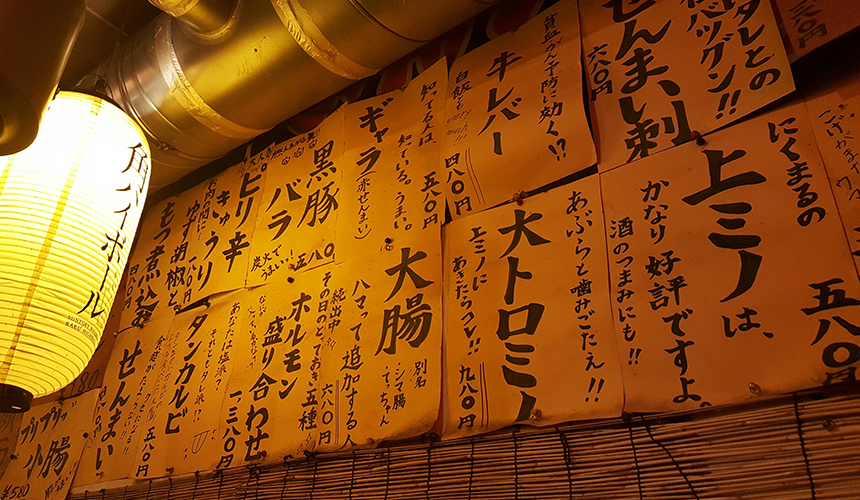 角ハイボール
SUNTORY
タレとの
相性バツグン!!
せんまい刺
六八〇円
貧血がん予防に効く!?
牛レバー
白飯も
very
much!!
四八〇円
知ってる人は
知ってる。うまい。
ギャラ(赤せんまい)
五八〇円
黒豚
バラ
炭火で
うまい!!
五八〇
ピリ辛
きゅうり
一八〇円
ゆず胡椒と
もつ煮込み
四八〇円
にくまるの
上ミノは、
かなり好評ですよ。
酒のつまみにも!!
五八〇円
あぶらと噛みごたえ!!
大トロミノ
上ミノに
あきたらコレ!!
九八〇円
大腸
別名
シマ腸
てっちゃん
ハマって追加する人
続出中
六八〇円
その日のとっておき五種
ホルモン
盛り合わせ
一、三八〇円
あなたは塩派?
それともタレ派?
タンカルビ
五八〇円
せんまい
プリップリ
小腸
¥580